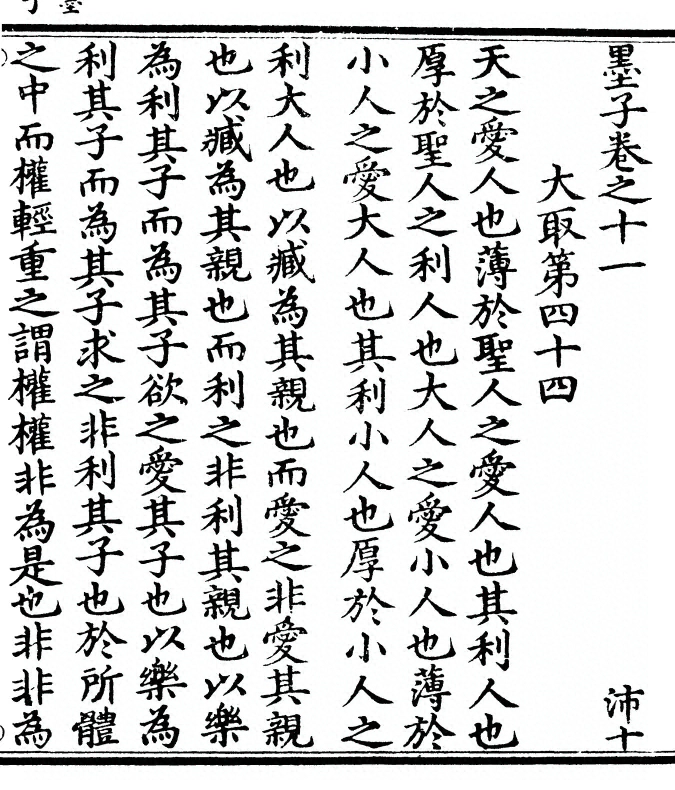 墨子卷之十一 沛十
大取第四十四
天之愛人也薄於聖人之愛人也其利人也
厚於聖人之利人也大人之愛小人也薄於
小人之愛大人也其利小人也厚於小人之
利大人也以臧為其親也而愛之非愛其親
也以臧為其親也而利之非利其親也以樂
為利其子而為其子欲之愛其子也以樂為
利其子而為其子求之非利其子也於所體
之中而權輕重之謂權權非為是也非非為